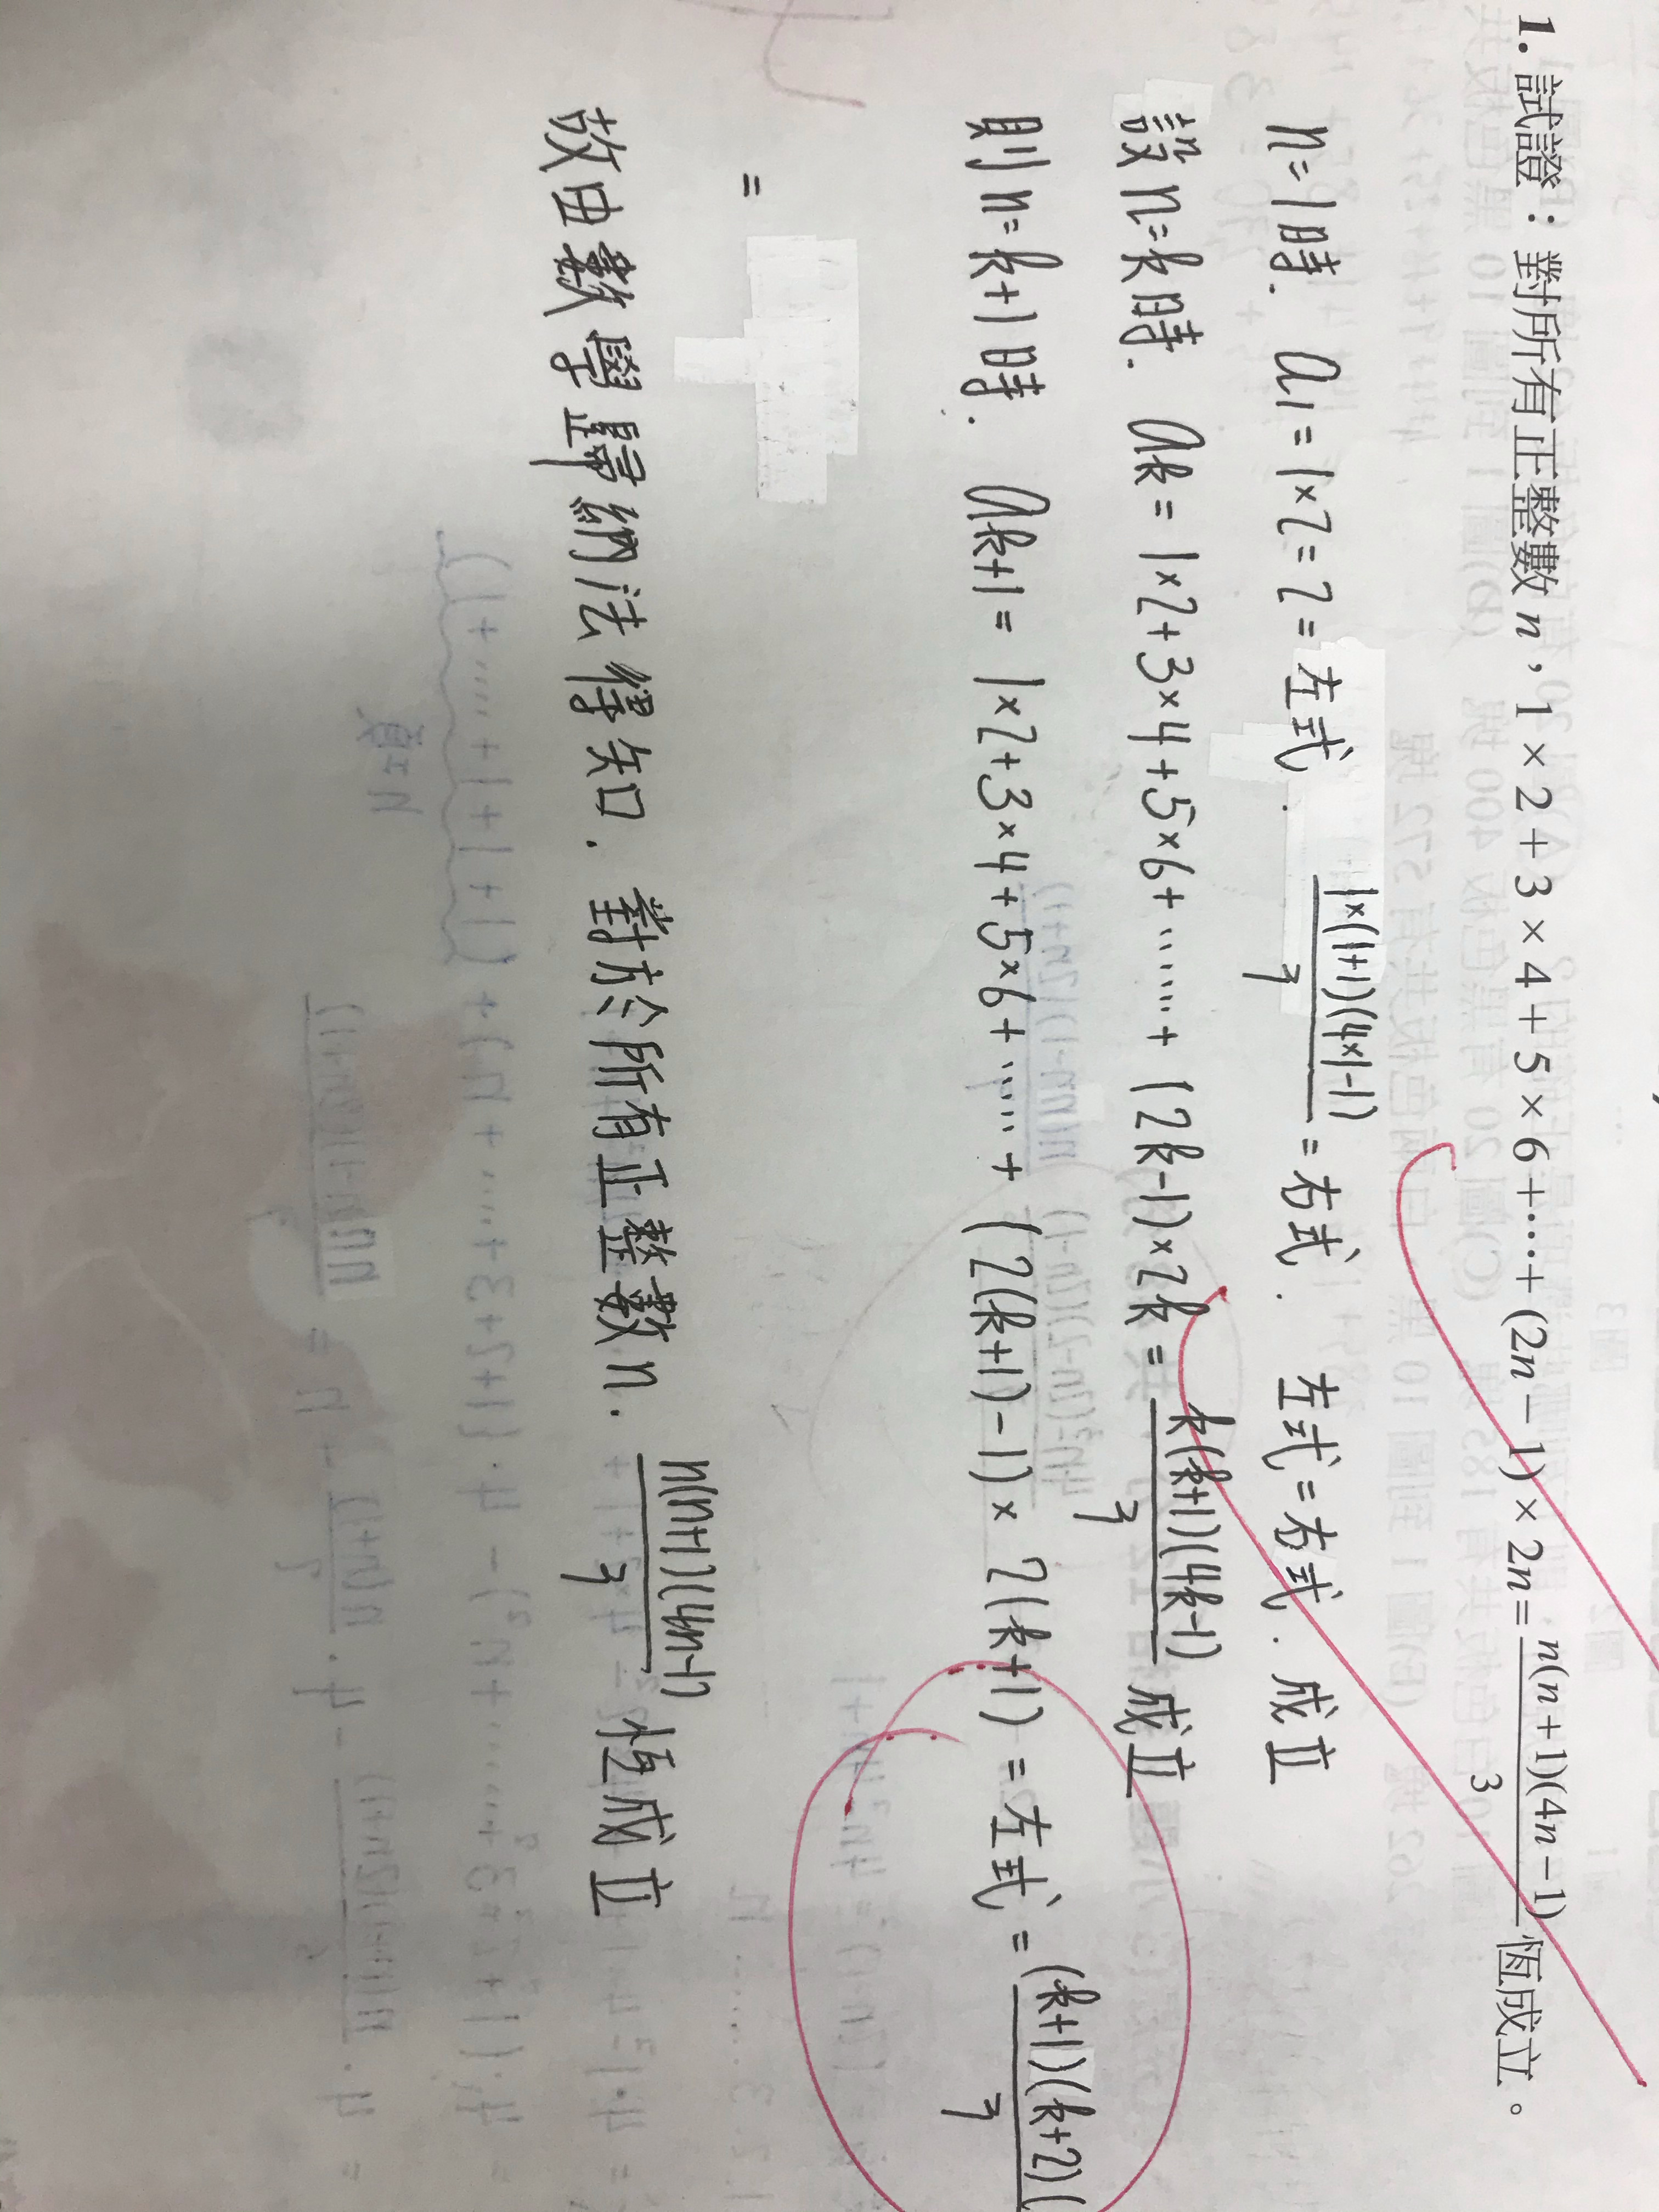 1. 試證：對所有正整數 n，1 × 2 + 3 × 4 + 5 × 6 + ⋯ + (2n − 1) × 2n = n(n + 1)(4n − 1)/3 恆成立。
n=1時. a₁ = 1×2 = 2 = 左式. 1×(1+1)(4×1-1)/3 = 右式. 左式=右式. 成立
設 n=k時. aₖ = 1×2+3×4+5×6+……+ (2k-1)×2k = k(k+1)(4k-1)/3 成立
則 n=k+1時. aₖ₊₁ = 1×2+3×4+5×6+……+ (2(k+1)-1)× 2(k+1) = 左式 = (k+1)(k+2)(/3
=
故由數學歸納法得知. 對於所有正整數n. n(n+1)(4n-1)/3 恆成立